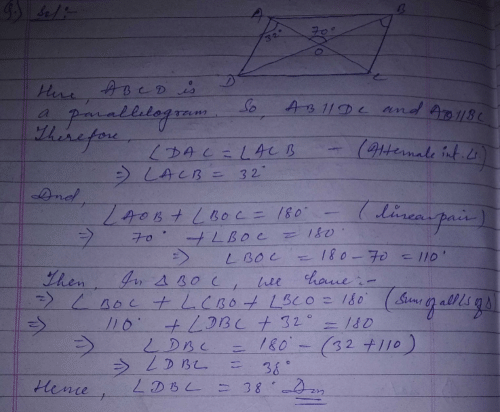 Sol:-
A B
32° 70°
O
D C
Here, ABCD is
a parallelogram. So, AB||DC and AD||BC
Therefore,
∠DAC = ∠ACB - (Alternate int. ∠s)
⇒ ∠ACB = 32°
And,
∠AOB + ∠BOC = 180° - (linear pair)
⇒ 70° + ∠BOC = 180°
⇒ ∠BOC = 180 - 70 = 110°
Then, In ΔBOC, we have:-
⇒ ∠BOC + ∠CBO + ∠BCO = 180° (Sum of all ∠s of Δ)
⇒ 110° + ∠DBC + 32° = 180
⇒ ∠DBC = 180° - (32 + 110)
⇒ ∠DBC = 38°
Hence, ∠DBC = 38°